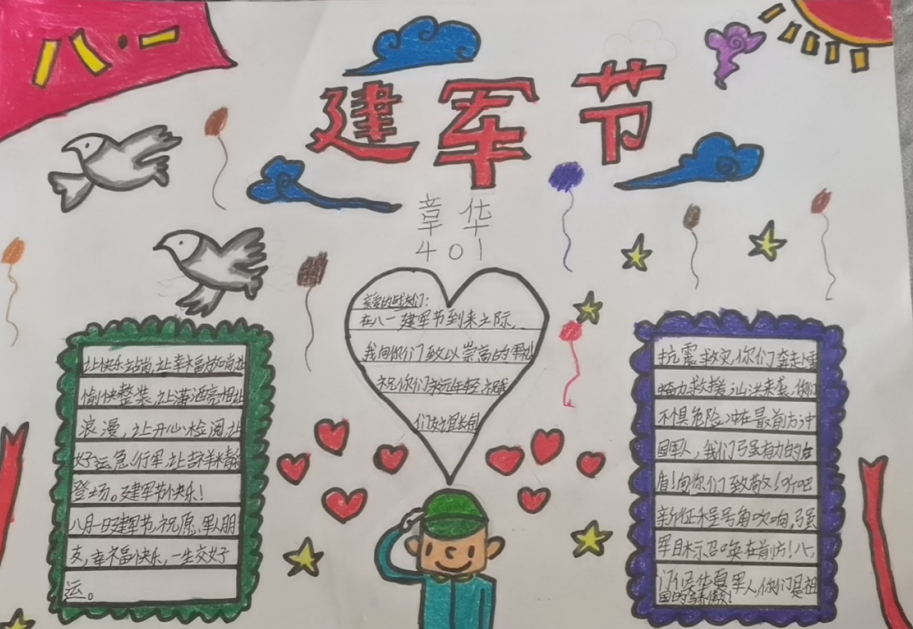 八·一
建军节
章华
401
亲爱的战友们：
在八一建军节到来之际，
我向你们致以崇高的军礼
祝你们永远年轻，祝我
们友谊长存
让快乐站岗，让幸福放哨，让
愉快整装，让潇洒亮相，让
浪漫，让开心检阅，让
好运急行军，让吉祥来
登场。建军节快乐！
八月一日建军节，祝愿军人朋
友，幸福快乐，一生交好
运。
抗震救灾，你们奔走
竭力救援，山洪来袭，你们
不惧危险，冲在最前方，中
国军人，我们强有力的后
盾！向你们致敬！听吧
新征程号角吹响，强
军目标召唤在前方！
国的骄傲！